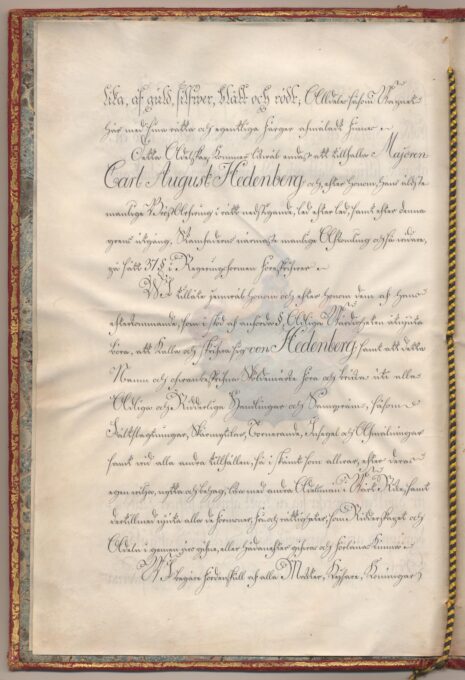 lika, af guld, silfwer, blått och rödt, Alldeles såsom Wapnet
här med sina rätta och egentliga färger afmåladt finnes
Detta Adelskap kommer likväl endast att tillfalla Majoren
Carl August Hedenberg och, efter honom, hans äldste
manlige Bröst-Arfwinge i rätt nedstigande led efter led, samt efter denna
grens utgång, Stamfadrens närmast manlige Afkomling och så vidare,
på sätt 37 § i Regeringsformen föreskrifwer
Wi tillåte jemwäl honom och efter honom dem af hans
efterkommande, som i stöd af anförde §, Adliga Wärdigheten åtnjuta
böra, att kalla och skrifwa sig von Hedenberg samt att detta
Namn och ofwanbeskrifne Sköldemärke föra och bruka uti alla
Adliga och Ridderliga Handlingar och Samqwäm, såsom
Fältslagtningar, Skärmytslar, Tornerande, Insegel och Afmålningar
samt wid alla andra tillfällen, så i skämt som allwar, efter deras
egen wilja, nytta och behag, lika med andra Adelsmän i Wårt Rike, samt
dertillmed njuta alla de förmoner, frå och rättigheter, som Ridderskapet och
Adeln i gemen äro gifne, eller hädanefter gifwas och förlänas kunna
Wi begäre fördenskull af alla Magter, Kejsare, Konungar